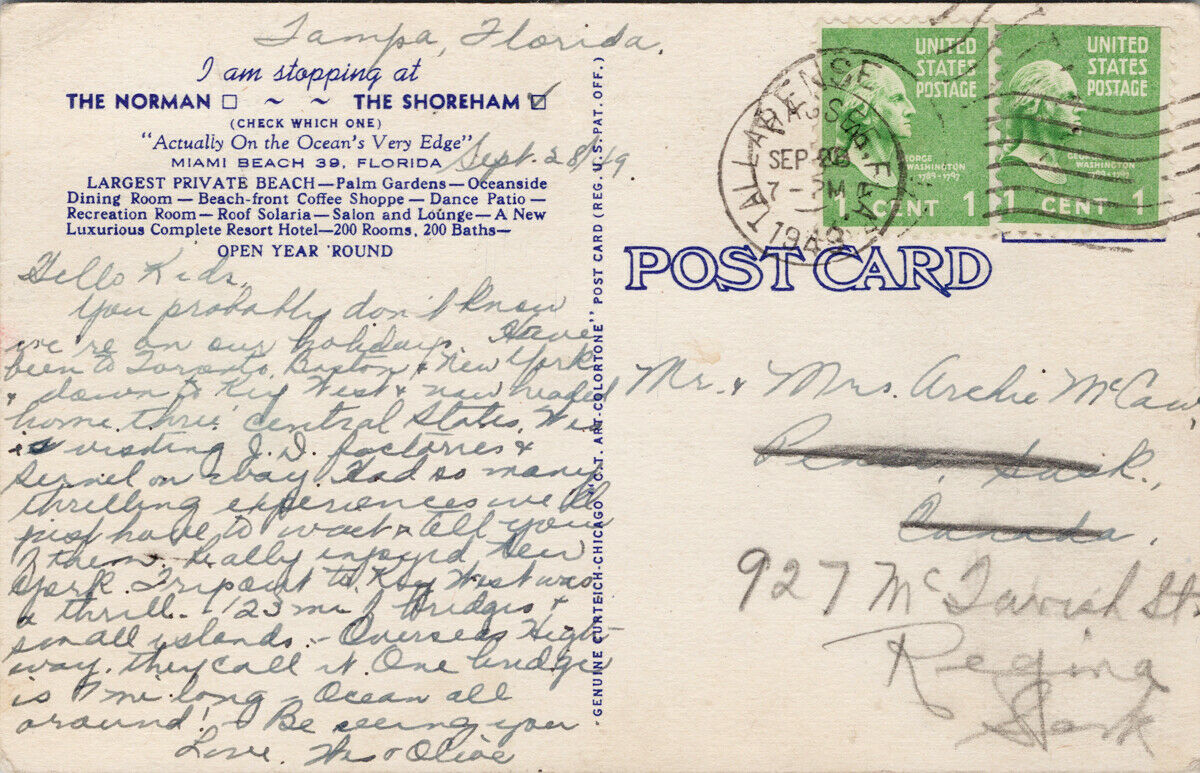 Tampa, Florida.
I am stopping at
THE NORMAN □ ~ ~ THE SHOREHAM ☑
(CHECK WHICH ONE)
"Actually On the Ocean's Very Edge"
MIAMI BEACH 39, FLORIDA
Sept. 28/49
LARGEST PRIVATE BEACH—Palm Gardens—Oceanside
Dining Room—Beach-front Coffee Shoppe—Dance Patio—
Recreation Room—Roof Solaria—Salon and Lounge—A New
Luxurious Complete Resort Hotel—200 Rooms, 200 Baths—
OPEN YEAR 'ROUND
Hello Kids,
You probably don't know
we're on our holidays. Have
been to Toronto, Boston & New York
& down to Key West & now headed
home thru central States. Wes
is visiting J.D. factories &
on way. Had so many
thrilling experiences we'll
just have to wait & tell you
of them. Really enjoyed New
York. Trip out to Key West was
a thrill. 123 mi of bridges &
small islands - Overseas High-
way, they call it. One bridge
is 7 mi long - Ocean all
around! Be seeing you
Love. Wes & Olive
GENUINE CURTEICH-CHICAGO "C.T. ART-COLORTONE" POST CARD (REG. U.S. PAT. OFF.)
TALLAHASSEE, FLA.
SEP 28
7-PM
1949
UNITED
STATES
POSTAGE
GEORGE
WASHINGTON
1789-1797
1 CENT 1
UNITED
STATES
POSTAGE
GEORGE
WASHINGTON
1789-1797
1 CENT 1
POST CARD
Mr. & Mrs. Archie McCaw,
Sask.,
Canada.
927 McTavish St
Regina
Sask